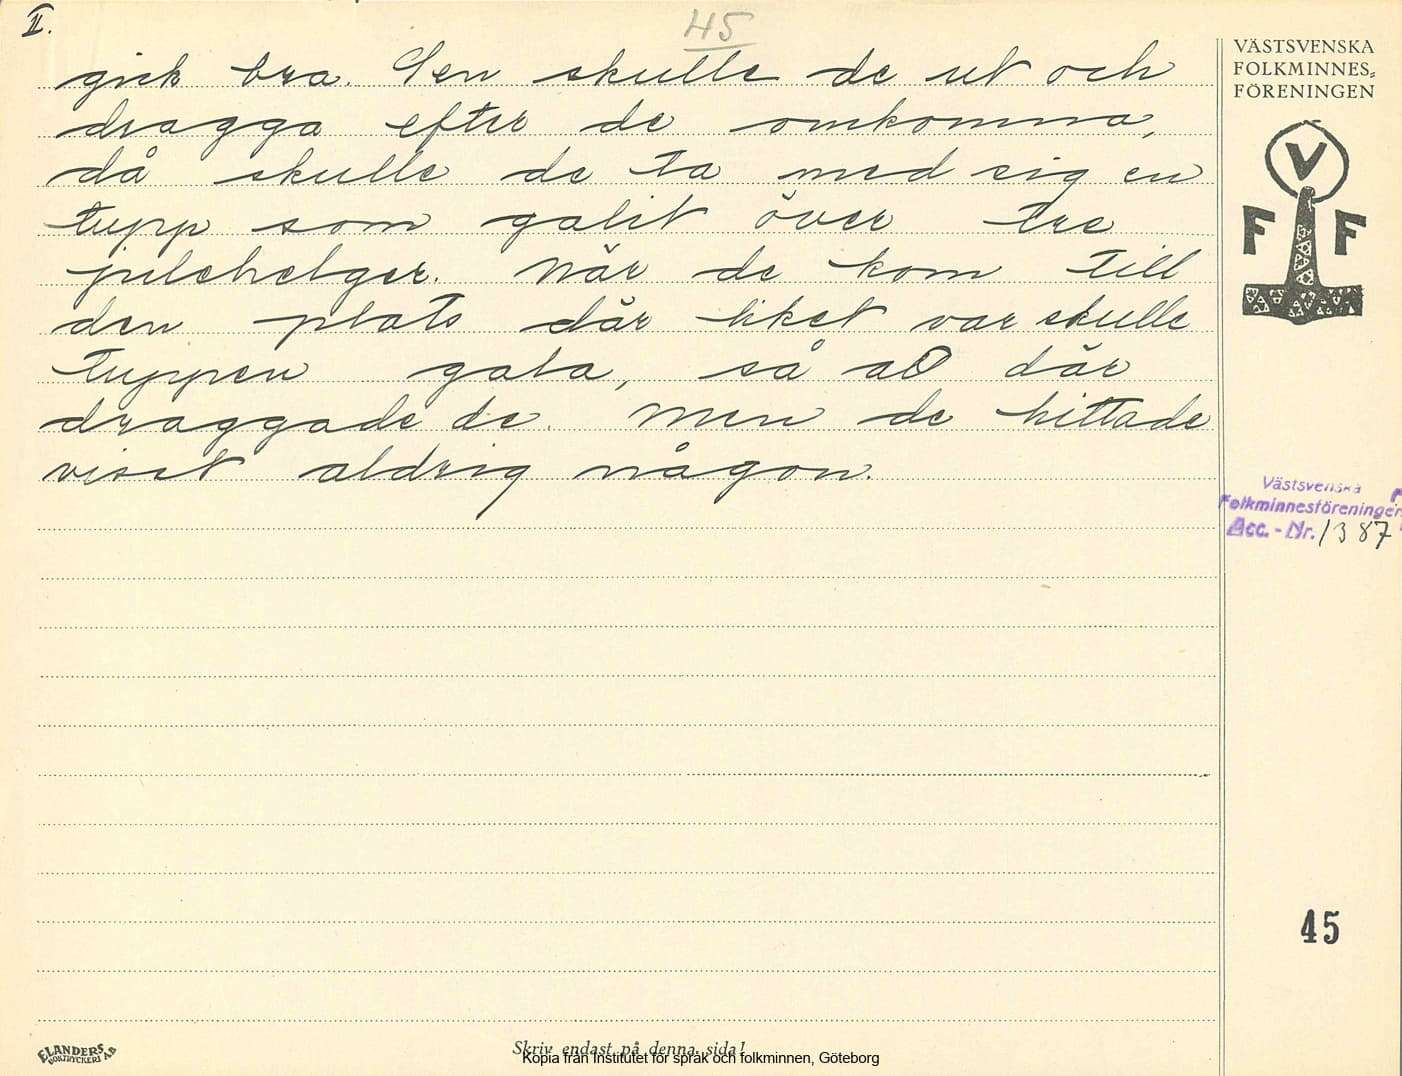 II.
45
gick bra. Sen skulle de ut och
dragga efter de omkomna,
då skulle de ta med sig en
tupp som galit över tre
julehelger. När de kom till
den plats där liket var skulle
tuppen gala, så att där
draggade de. Men de hittade
visst aldrig någon.
VÄSTSVENSKA
FOLKMINNES=
FÖRENINGEN
V
F F
Västsvenska
Folkminnesföreningen
Acc. - Nr. 1387
45
ELANDERS
BOKTRYCKERI AB
Skriv endast på denna sida!
Kopia från Institutet för språk och folkminnen, Göteborg